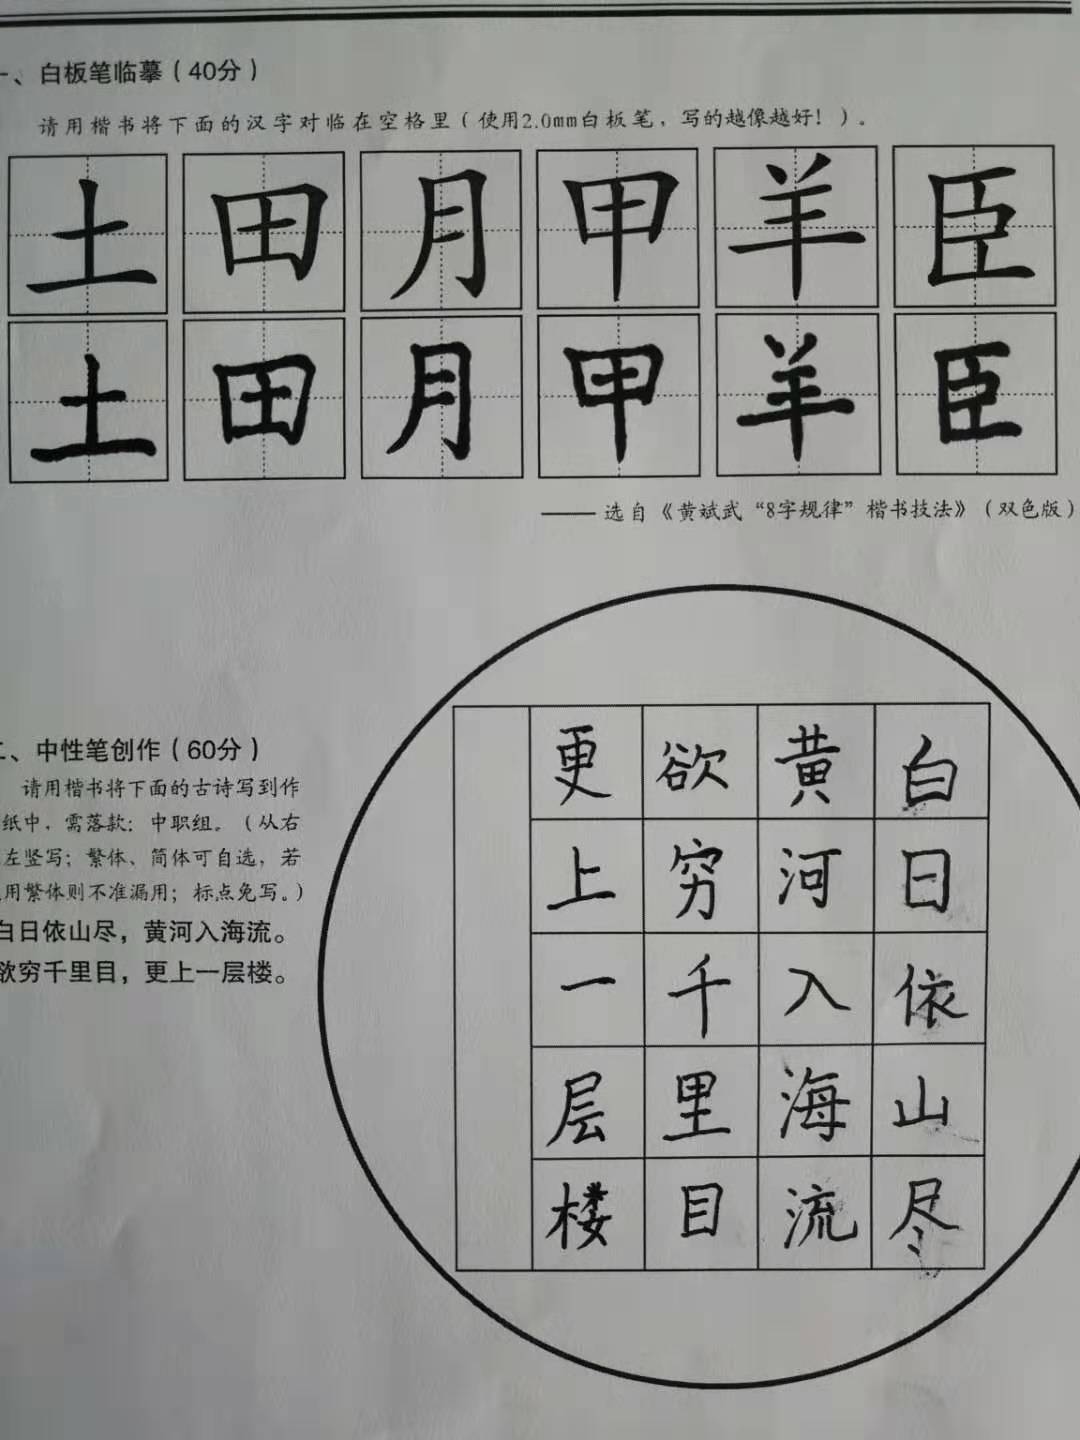 一、白板笔临摹（40分）
请用楷书将下面的汉字对临在空格里（使用2.0mm白板笔，写的越像越好！）。
土田月甲羊臣
土田月甲羊臣
——选自《黄斌武“8字规律”楷书技法》（双色版）
二、中性笔创作（60分）
请用楷书将下面的古诗写到作
纸中，需落款：中职组。（从右
左竖写；繁体、简体可自选，若
用繁体则不准漏用；标点免写。）
白日依山尽，黄河入海流。
欲穷千里目，更上一层楼。
白日依山尽
黄河入海流
欲穷千里目
更上一层楼